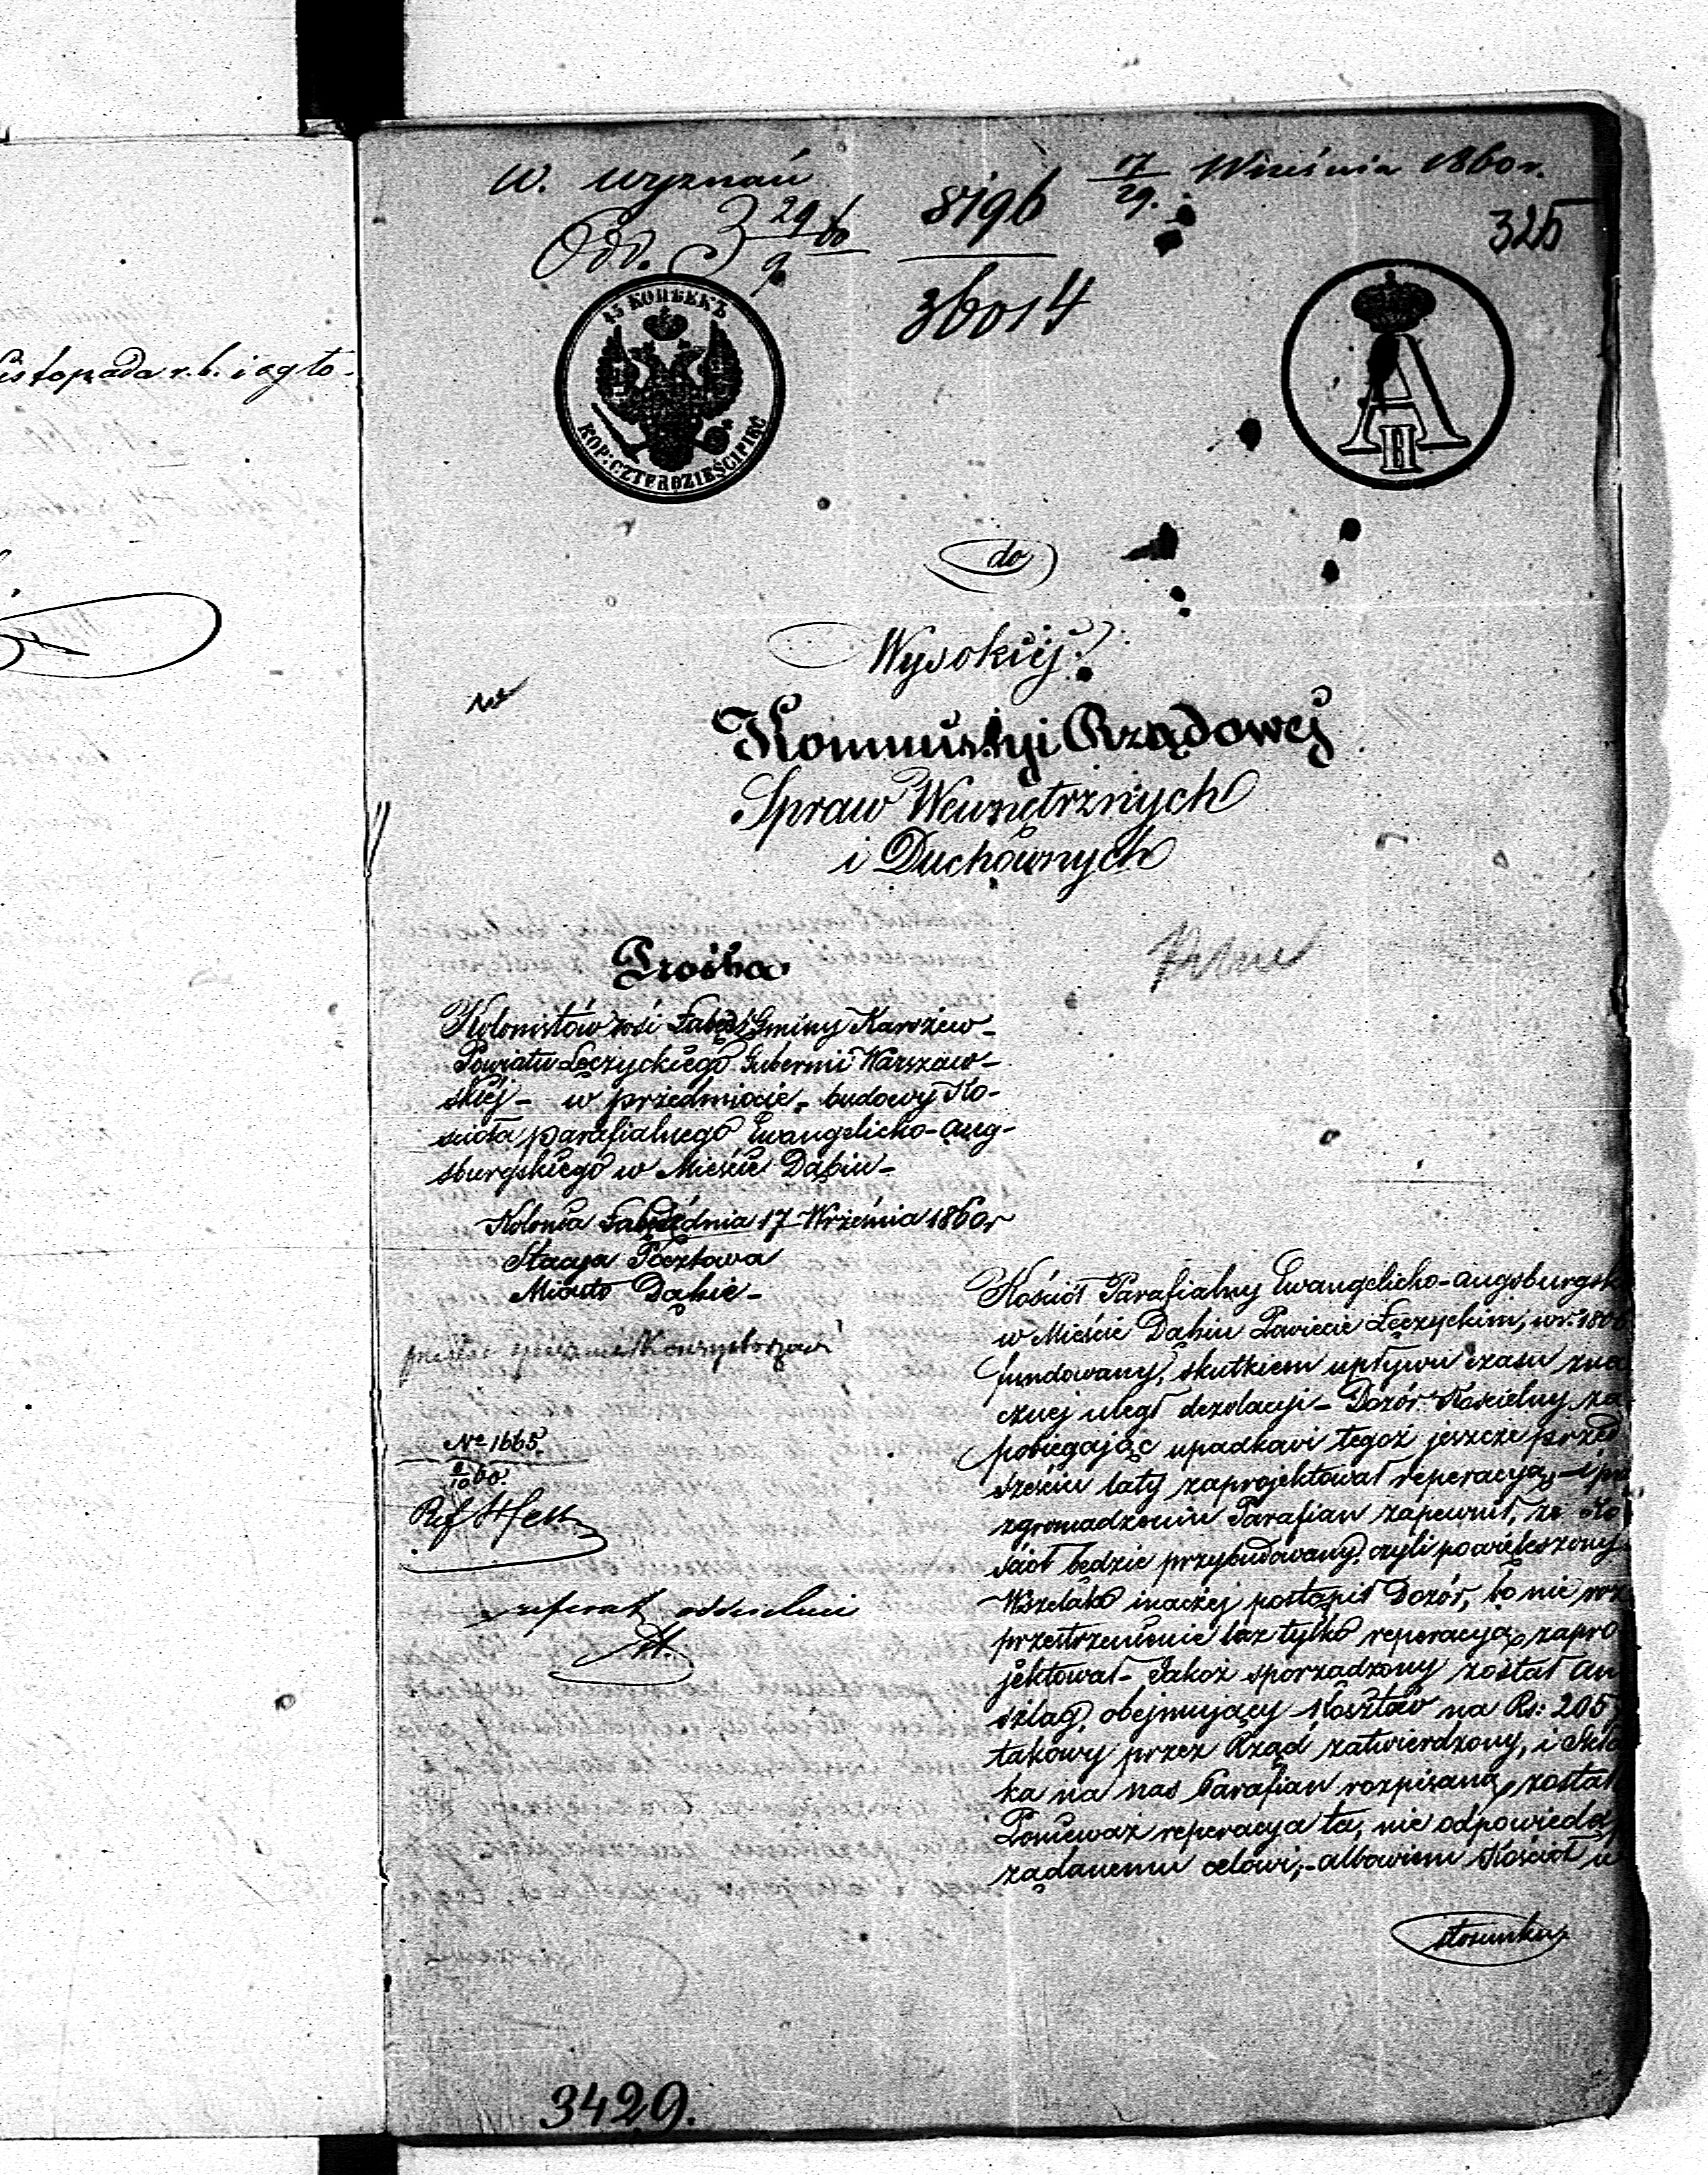 listopada r.b. i ogło-
W. Wyznań
17/29. Września 1860 r.
Odd. 3 29/9 60
8196
36014
325
45 КОПѢЕКЪ
KOP: CZTERDZIEŚCI PIĘĆ
A II
do
Wysokiéj
Kommissyi Rządowej
Spraw Wewnętrznych
i Duchownych
Prośba
Kolonistów wsi Łabędź Gminy Karszew
Powiatu Łęczyckiego Gubernii Warszaw-
skiéj - w przedmiocie budowy Ko-
ścioła parafialnego Ewangelicko-aug-
sburgskiego w Mieście Dąbiu -
Kolonia Łabędź dnia 17 Września 1860 r
Stacya Pocztowa
Miasto Dąbie -
Nº 1665.
/10 60
Ref Hess
referat oddzielni
H.
Kościół Parafialny Ewangelicko-augsburgsk
w Mieście Dąbiu Powiecie Łęczyckim, w r. 180
fundowany, skutkiem upływu czasu zna
cznej uległ dezolacyi - Dozór Kościelny za-
pobiegając upadkowi tegoż jeszcze przed
sześciu laty zaprojektował reperacyą, - i
zgromadzeniu Parafian zapewnił, że Ko
ściół będzie przybudowany czyli powiększony.
Wszelako inaczéj postąpił Dozór, bo nie roz
przestrzenienie lecz tylko reperacyą zapro
jektował - Jakoż sporządzony został An
szlag, obejmujący Kosztów na Rs: 205
takowy przez Rząd zatwierdzony, i Skła
ka na nas Parafian rozpisaną została
Ponieważ reperacya ta, nie odpowieda
żądanemu celowi, - albowiem Kościół w
stosunku
3429.